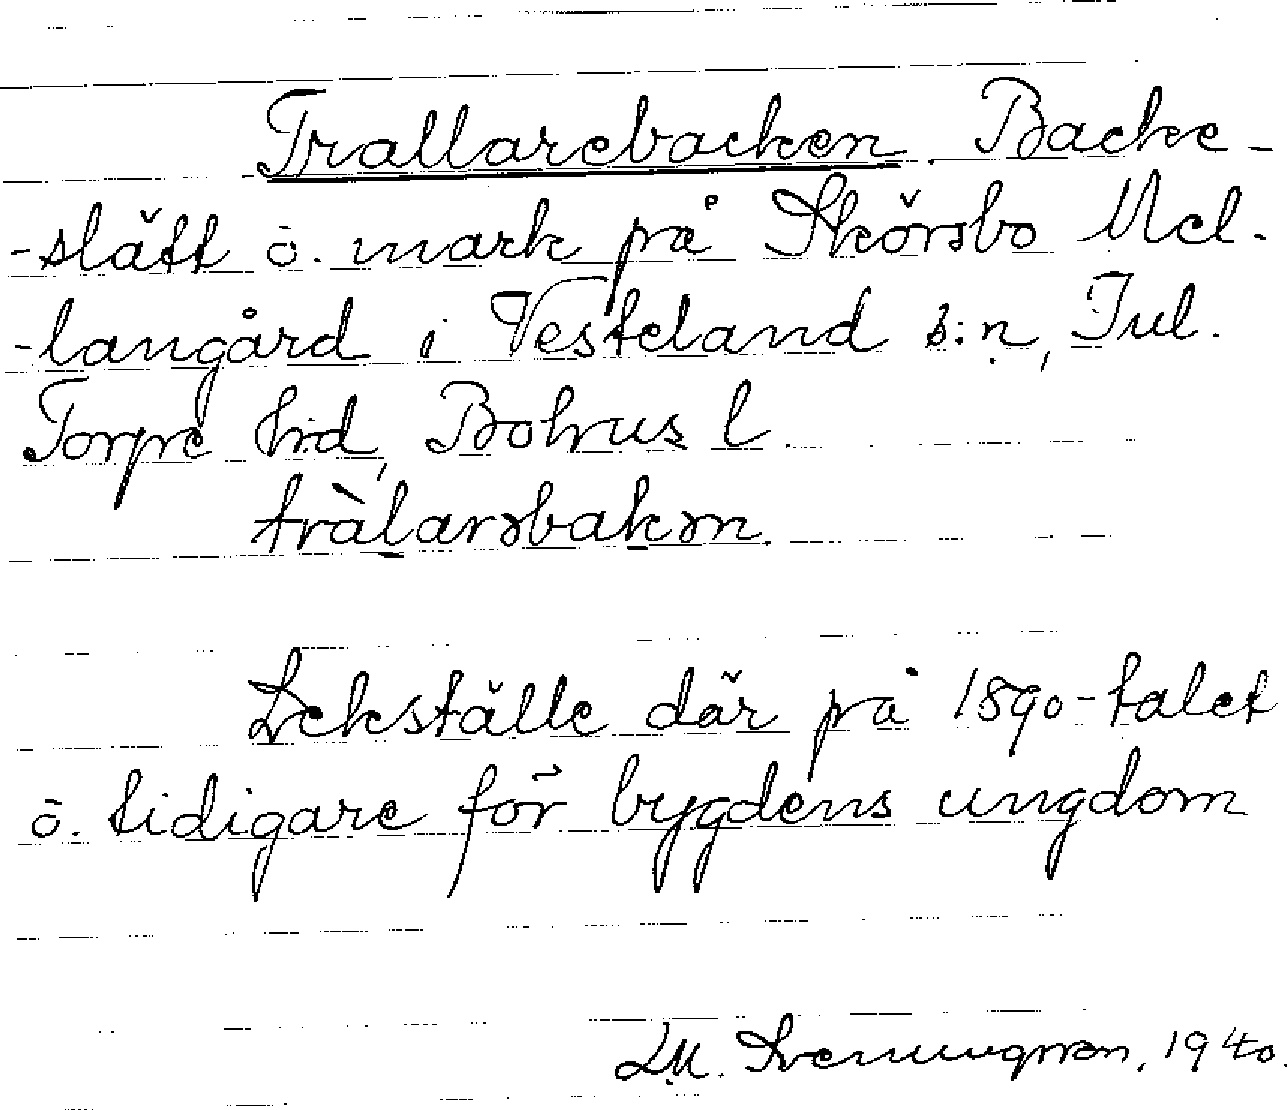 Trallarebacken. Backe-
-slätt ö. mark på Skörsbo Mel-
-langård i Vesteland s:n, Tul.
Torpe hrd, Bohus l.
tràlarsbakən.
Lekställe där på 1890-talet
ö. tidigare för bygdens ungdom
LM. Svenungsson, 1940.